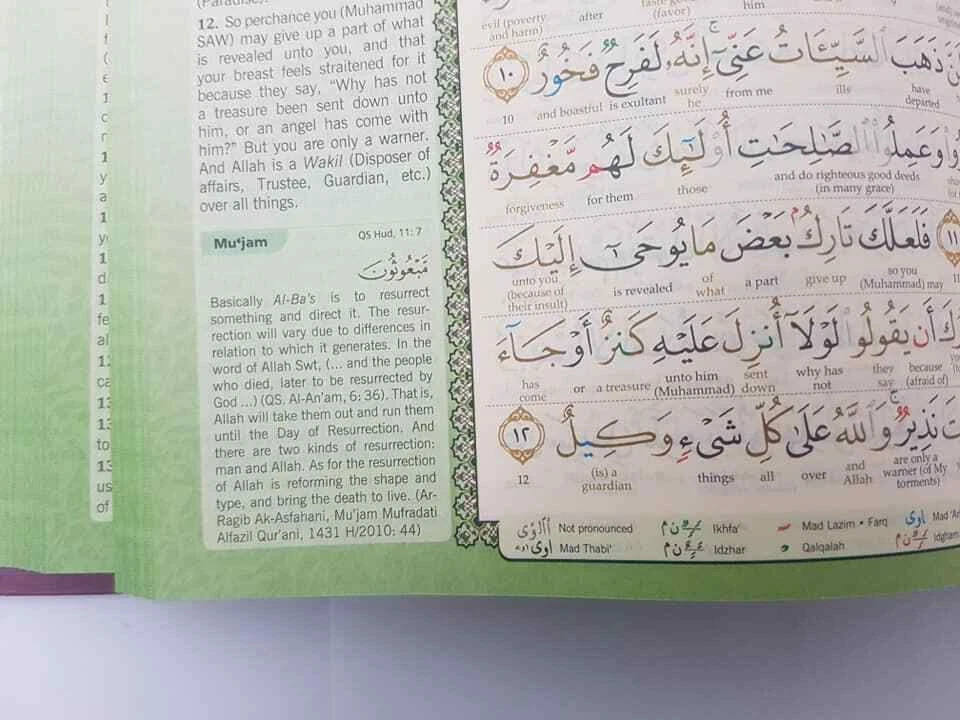 (Paradise).
12. So perchance you (Muhammad
SAW) may give up a part of what
is revealed unto you, and that
your breast feels straitened for it
because they say, "Why has not
a treasure been sent down unto
him, or an angel has come with
him?" But you are only a warner.
And Allah is a Wakil (Disposer of
affairs, Trustee, Guardian, etc.)
over all things.
Mu'jam
QS Hud, 11: 7
مَبْعُوثُونَ
Basically Al-Ba's is to resurrect
something and direct it. The resur-
rection will vary due to differences in
relation to which it generates. In the
word of Allah Swt, (... and the people
who died, later to be resurrected by
God ...) (QS. Al-An'am, 6: 36). That is,
Allah will take them out and run them
until the Day of Resurrection. And
there are two kinds of resurrection:
man and Allah. As for the resurrection
of Allah is reforming the shape and
type, and bring the death to live. (Ar-
Ragib Ak-Asfahani, Mu'jam Mufradati
Alfazil Qur'ani, 1431 H/2010: 44)
evil (poverty and harm) after (favor) him
ذَهَبَ السَّيِّـَٔاتُ عَنِّيٓ ۚ إِنَّهُۥ لَفَرِحٌ فَخُورٌ ١٠
10 and boastful is exultant surely he from me ills have departed
وَعَمِلُوا۟ ٱلصَّـٰلِحَـٰتِ أُو۟لَـٰٓئِكَ لَهُم مَّغْفِرَةٌ
forgiveness for them those and do righteous good deeds (in many grace)
١١ فَلَعَلَّكَ تَارِكٌۢ بَعْضَ مَا يُوحَىٰٓ إِلَيْكَ
unto you (because of their insult) is revealed of what a part give up so you (Muhammad) may 11
أَن يَقُولُوا۟ لَوْلَآ أُنزِلَ عَلَيْهِ كَنزٌ أَوْ جَآءَ
has come or a treasure unto him (Muhammad) sent down why has not they say because (afraid of)
نَذِيرٌ ۚ وَٱللَّهُ عَلَىٰ كُلِّ شَىْءٍ وَكِيلٌ ١٢
12 (is) a guardian things all over and Allah are only a warner (of My torments)
Not pronounced Ikhfa' Mad Lazim • Farq
Mad Thabi' Idzhar Qalqalah Idgham